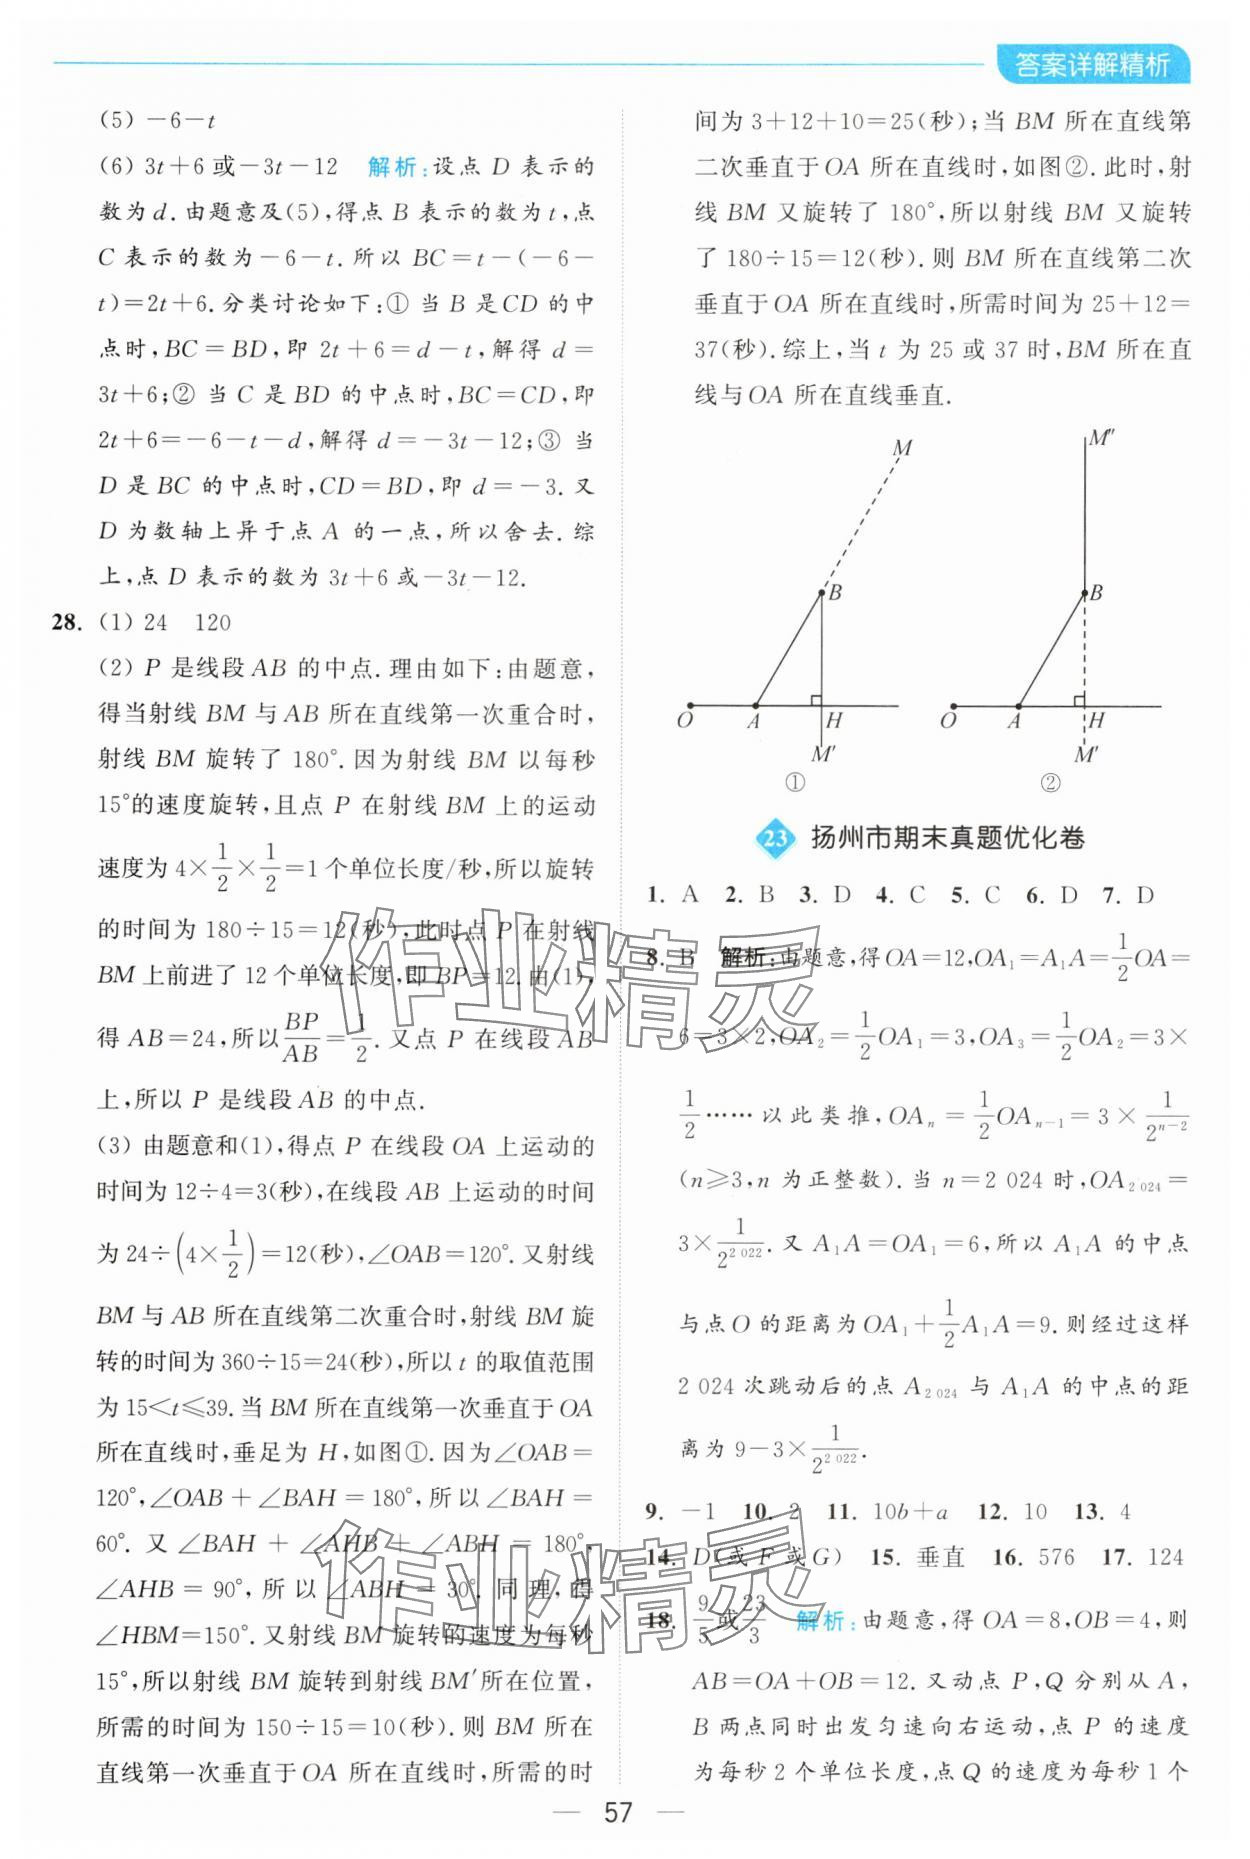 答案详解精析
(5) －6－t
(6) 3t＋6 或－3t－12　解析：设点 D 表示的
数为 d．由题意及(5)，得点 B 表示的数为 t，点
C 表示的数为－6－t．所以 BC＝t－(－6－
t)＝2t＋6．分类讨论如下：① 当 B 是CD 的中
点时，BC＝BD，即 2t＋6＝d－t，解得 d＝
3t＋6；② 当 C 是 BD 的中点时，BC＝CD，即
2t＋6＝－6－t－d，解得 d＝－3t－12；③ 当
D 是 BC 的中点时，CD＝BD，即 d＝－3．又
D 为数轴上异于点 A 的一点，所以舍去．综
上，点 D 表示的数为 3t＋6 或－3t－12．
28. (1) 24　120
(2) P 是线段 AB 的中点．理由如下：由题意，
得当射线 BM 与 AB 所在直线第一次重合时，
射线 BM 旋转了 180°．因为射线 BM 以每秒
15°的速度旋转，且点 P 在射线 BM 上的运动
速度为 4×1/2×1/2＝1 个单位长度/秒，所以旋转
的时间为 180÷15＝12(秒)，此时点 P 在射线
BM 上前进了 12 个单位长度，即 BP＝12．由(1)，
得 AB＝24，所以 BP/AB＝1/2．又点 P 在线段 AB
上，所以 P 是线段 AB 的中点．
(3) 由题意和(1)，得点 P 在线段 OA 上运动的
时间为 12÷4＝3(秒)，在线段 AB 上运动的时间
为 24÷(4×1/2)＝12(秒)，∠OAB＝120°．又射线
BM 与 AB 所在直线第二次重合时，射线 BM 旋
转的时间为 360÷15＝24(秒)，所以 t 的取值范围
为 15＜t≤39．当 BM 所在直线第一次垂直于 OA
所在直线时，垂足为 H，如图①．因为∠OAB＝
120°，∠OAB＋∠BAH＝180°，所以∠BAH＝
60°．又∠BAH＋∠AHB＋∠ABH＝180°，
∠AHB＝90°，所以∠ABH＝30°．同理，得
∠HBM＝150°．又射线 BM 旋转的速度为每秒
15°，所以射线 BM 旋转到射线 BM′所在位置，
所需的时间为 150÷15＝10(秒)．则 BM 所在
直线第一次垂直于 OA 所在直线时，所需的时
间为 3＋12＋10＝25(秒)；当 BM 所在直线第
二次垂直于 OA 所在直线时，如图②．此时，射
线 BM 又旋转了 180°，所以射线 BM 又旋转
了 180÷15＝12(秒)．则 BM 所在直线第二次
垂直于 OA 所在直线时，所需时间为 25＋12＝
37(秒)．综上，当 t 为 25 或 37 时，BM 所在直
线与 OA 所在直线垂直．
M
B
O A H
M′
①
M″
B
O A H
M′
②
23 扬州市期末真题优化卷
1. A　2. B　3. D　4. C　5. C　6. D　7. D
8. B　解析：由题意，得 OA＝12，OA₁＝A₁A＝1/2 OA＝
6＝3×2，OA₂＝1/2 OA₁＝3，OA₃＝1/2 OA₂＝3×
1/2……以此类推，OAₙ＝1/2 OAₙ₋₁＝3×1/2ⁿ⁻²
(n≥3，n 为正整数)．当 n＝2 024 时，OA₂ ₀₂₄＝
3×1/2² ⁰²²．又 A₁A＝OA₁＝6，所以 A₁A 的中点
与点 O 的距离为 OA₁＋1/2 A₁A＝9．则经过这样
2 024 次跳动后的点 A₂ ₀₂₄ 与 A₁A 的中点的距
离为 9－3×1/2² ⁰²²．
9. －1　10. 2　11. 10b＋a　12. 10　13. 4
14. D(或 F 或 G)　15. 垂直　16. 576　17. 124
18. 9/5 或 23/3　解析：由题意，得 OA＝8，OB＝4，则
AB＝OA＋OB＝12．又动点 P，Q 分别从 A，
B 两点同时出发匀速向右运动，点 P 的速度
为每秒 2 个单位长度，点 Q 的速度为每秒 1 个
作业精灵
作业精灵
— 57 —